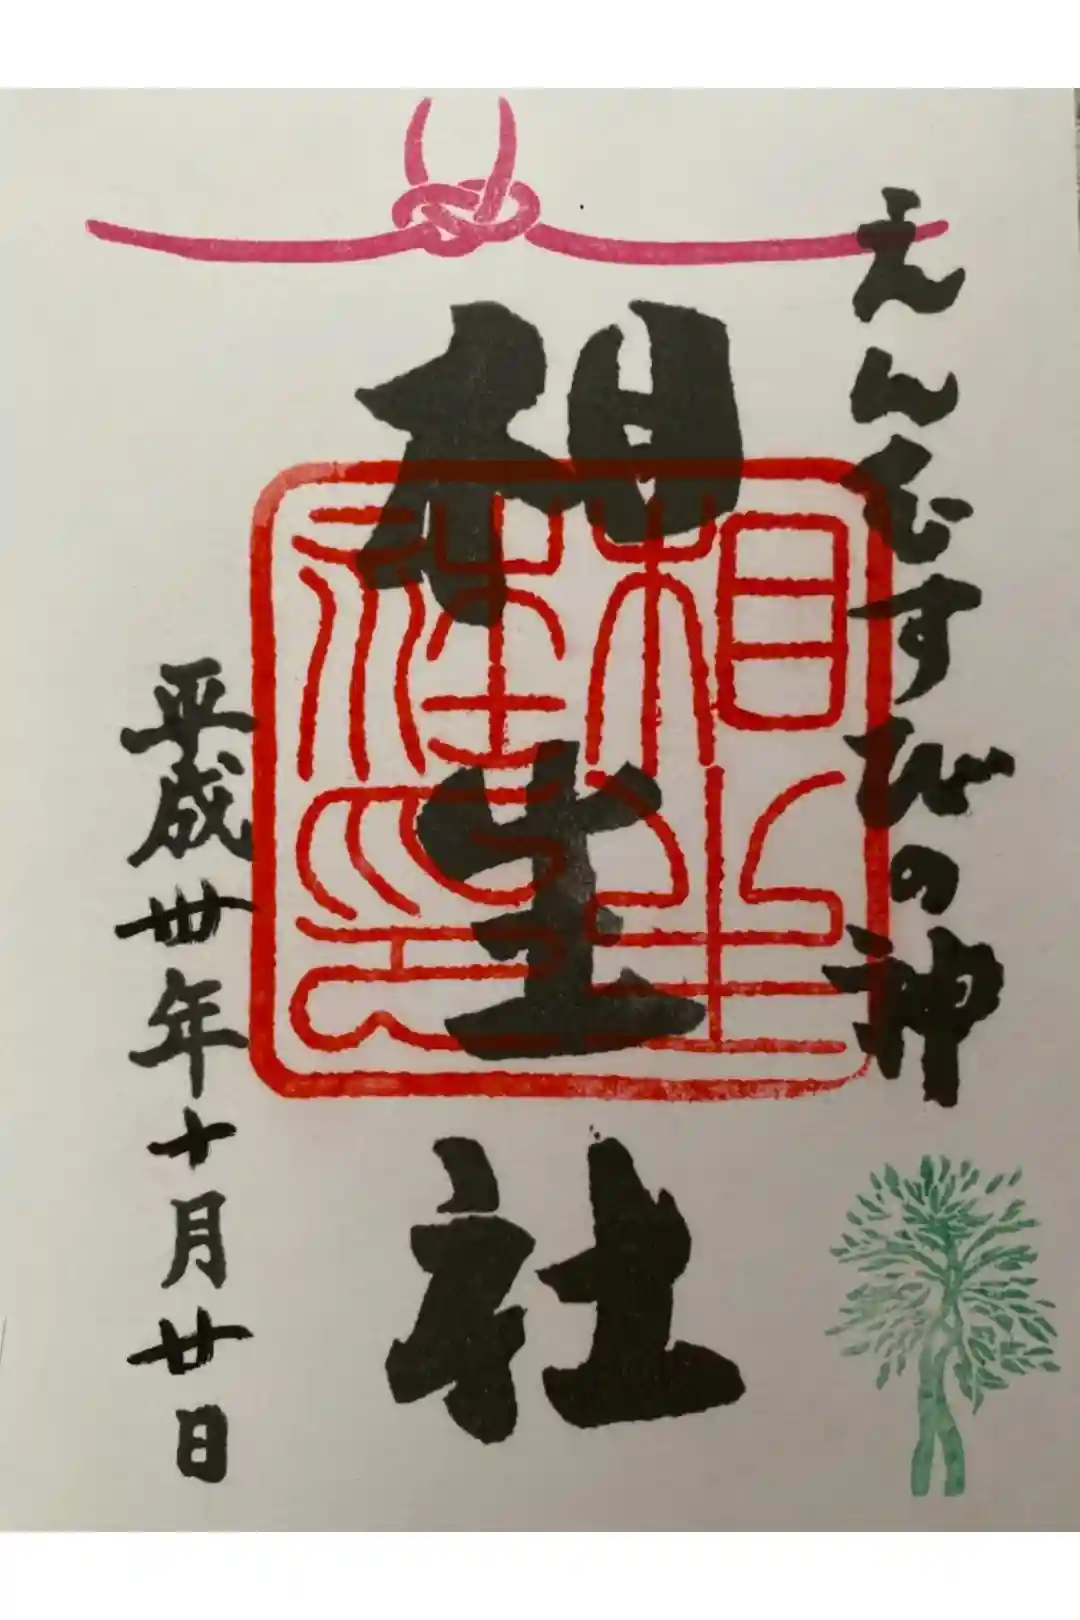 えんむすびの神
相生社
平成卅年十月廿日